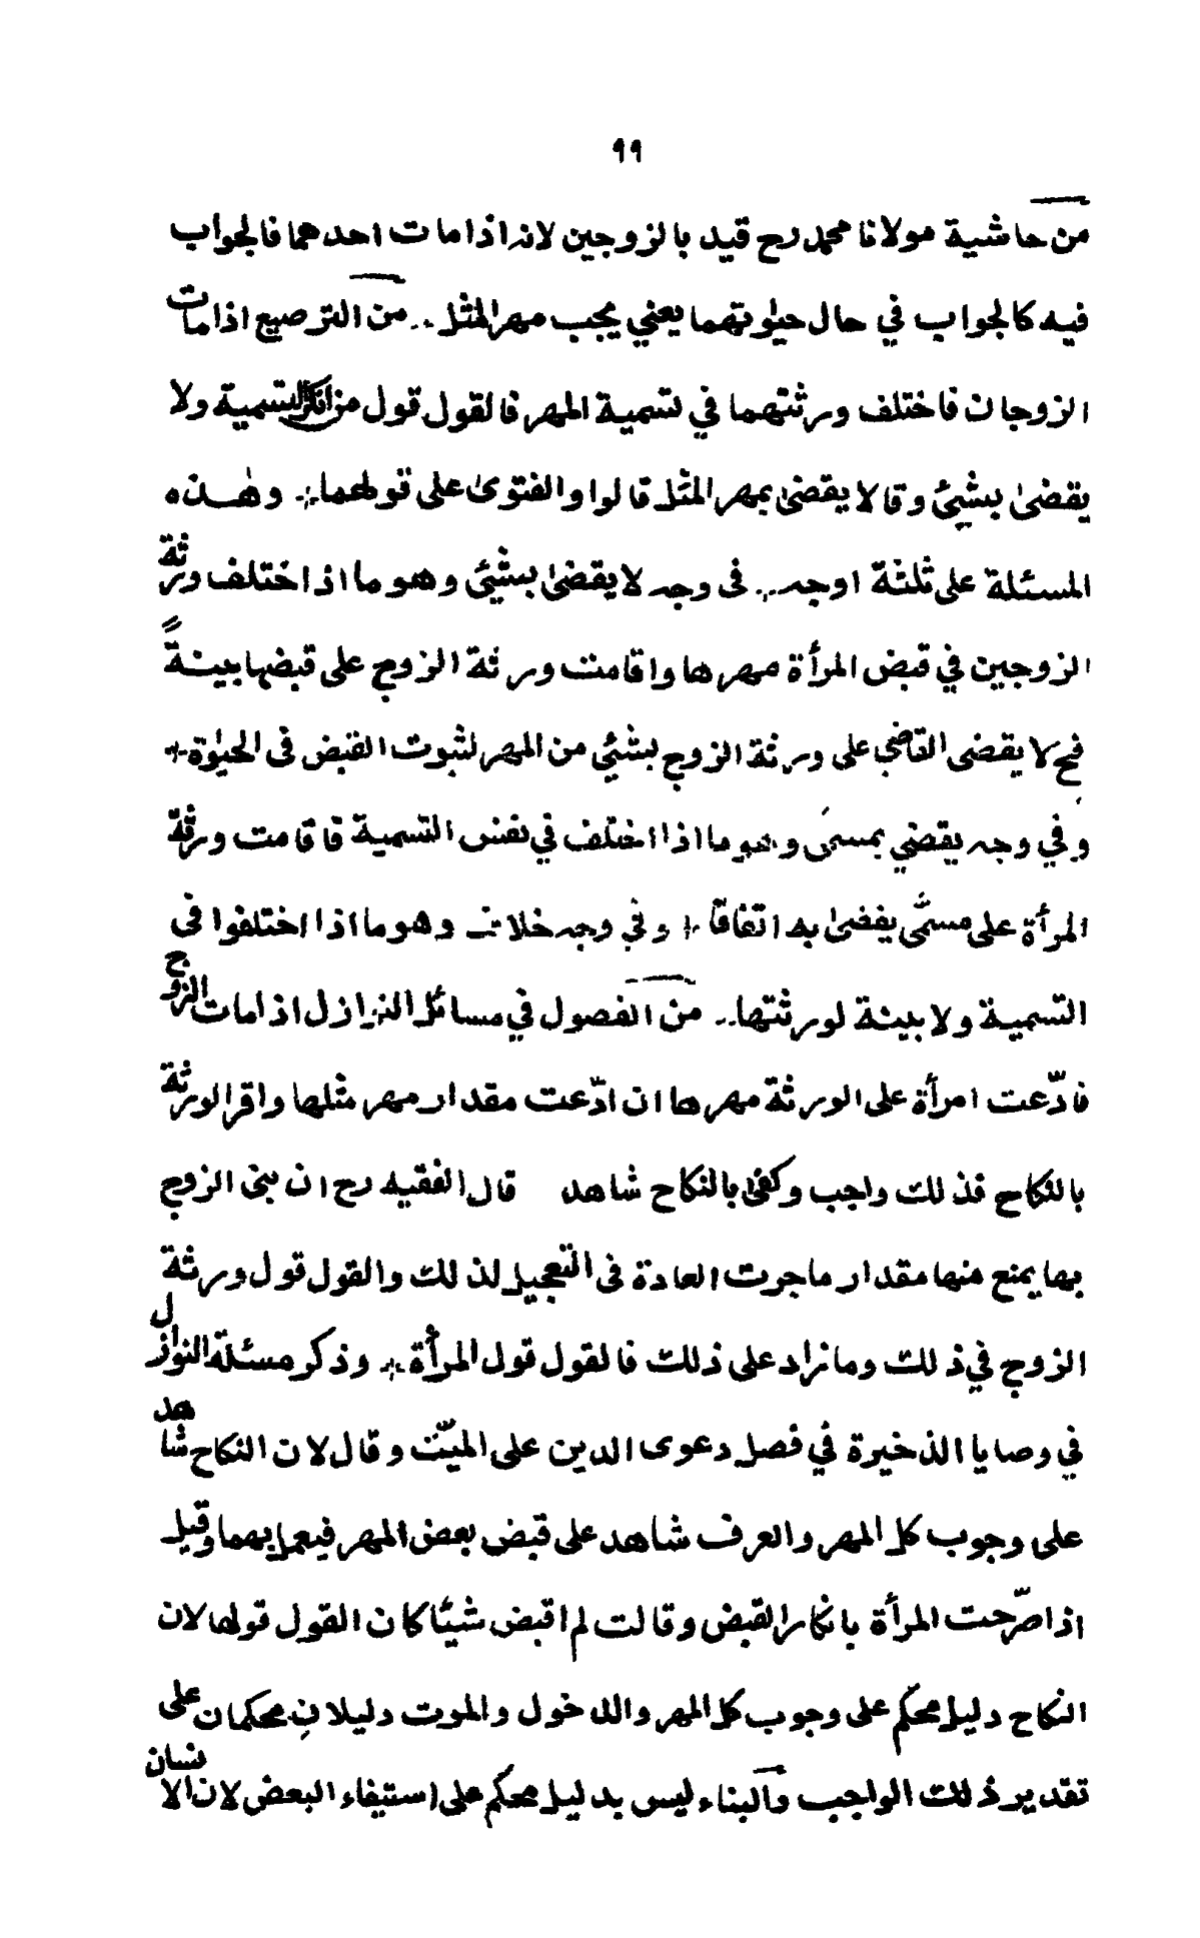 ٩٩
من حاشية مولانا محمد رح قيد بالزوجين لانه اذا مات احدهما فالجواب
فيه كالجواب في حال حيٰوتهما يعني يجب مهر المثل .. من الترصيع اذا مات
الزوجان فاختلف ورثتهما في تسمية المهر فالقول قول من انكر التسمية ولا
يقضىٰ بشيئ وقالا يقضىٰ بمهر المثل قالوا والفتوىٰ على قولهما وهٰذه
المسئلة على ثلثة اوجه .. فى وجه لا يقضىٰ بشيئ وهو ما اذا اختلف ورثة
الزوجين في قبض المرأة مهرها واقامت ورثة الزوج على قبضها بينةً
فح لا يقضى القاضي على ورثة الزوج بشئي من المهر لثبوت القبض فى الحيٰوة
وفي وجه يقضي بمسمى وهو ما اذا اختلف في نفس التسمية فاقامت ورثة
المرأة على مسمًّى يقضىٰ به اتفاقًا وفي وجه خلاف وهو ما اذا اختلفوا فى
التسمية ولا بينة لورثتها .. من الفصول في مسائل النوازل اذا مات الزوج
فادّعت امرأة على الورثة مهرها ان ادّعت مقدار مهر مثلها واقر الورثة
بالنكاح فذلك واجب وكفىٰ بالنكاح شاهد قال الفقيه رح ان بنى الزوج
بها يمنع منها مقدار ما جرت العادة فى التعجيل لذلك والقول قول ورثة
الزوج في ذلك وما زاد على ذلك فالقول قول المرأة وذكر مسئلة النوازل
في وصايا الذخيرة في فصل دعوى الدين على الميّت وقال لان النكاح شاهد
على وجوب كل المهر والعرف شاهد على قبض بعض المهر فيعمل بهما وقيل
اذا صرّحت المرأة بانكار القبض وقالت لم اقبض شيئا كان القول قولها لان
النكاح دليل محكم على وجوب كل المهر والدخول والموت دليلان محكمان على
تقدير ذلك الواجب والبناء ليس بدليل محكم على استيفاء البعض لان الانسان